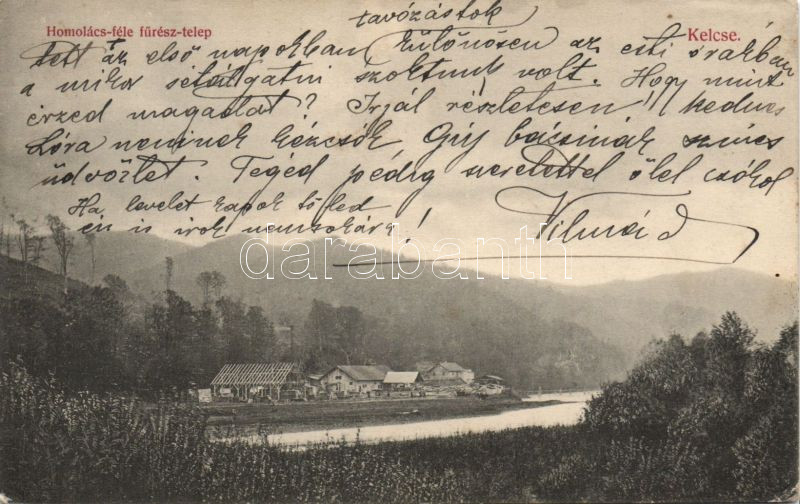 tavózástok
Homolács-féle fűrész-telep
Kelcse.
tett az első napokban különösen az esti órákban
a mikor sétálgatni szoktunk volt. Hogy mint
érzed magadat? Irjál részletesen! kedves
Lóra neninek kézcsók Guy bácsinak szives
üdvözlet. Téged pedig szeretettel ölel csókol
Ha levelet kapok tőled
én is irok nemsokára! Vilmád
darabanth